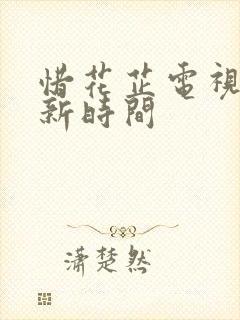 惜花芷電視
新時間
瀟楚然